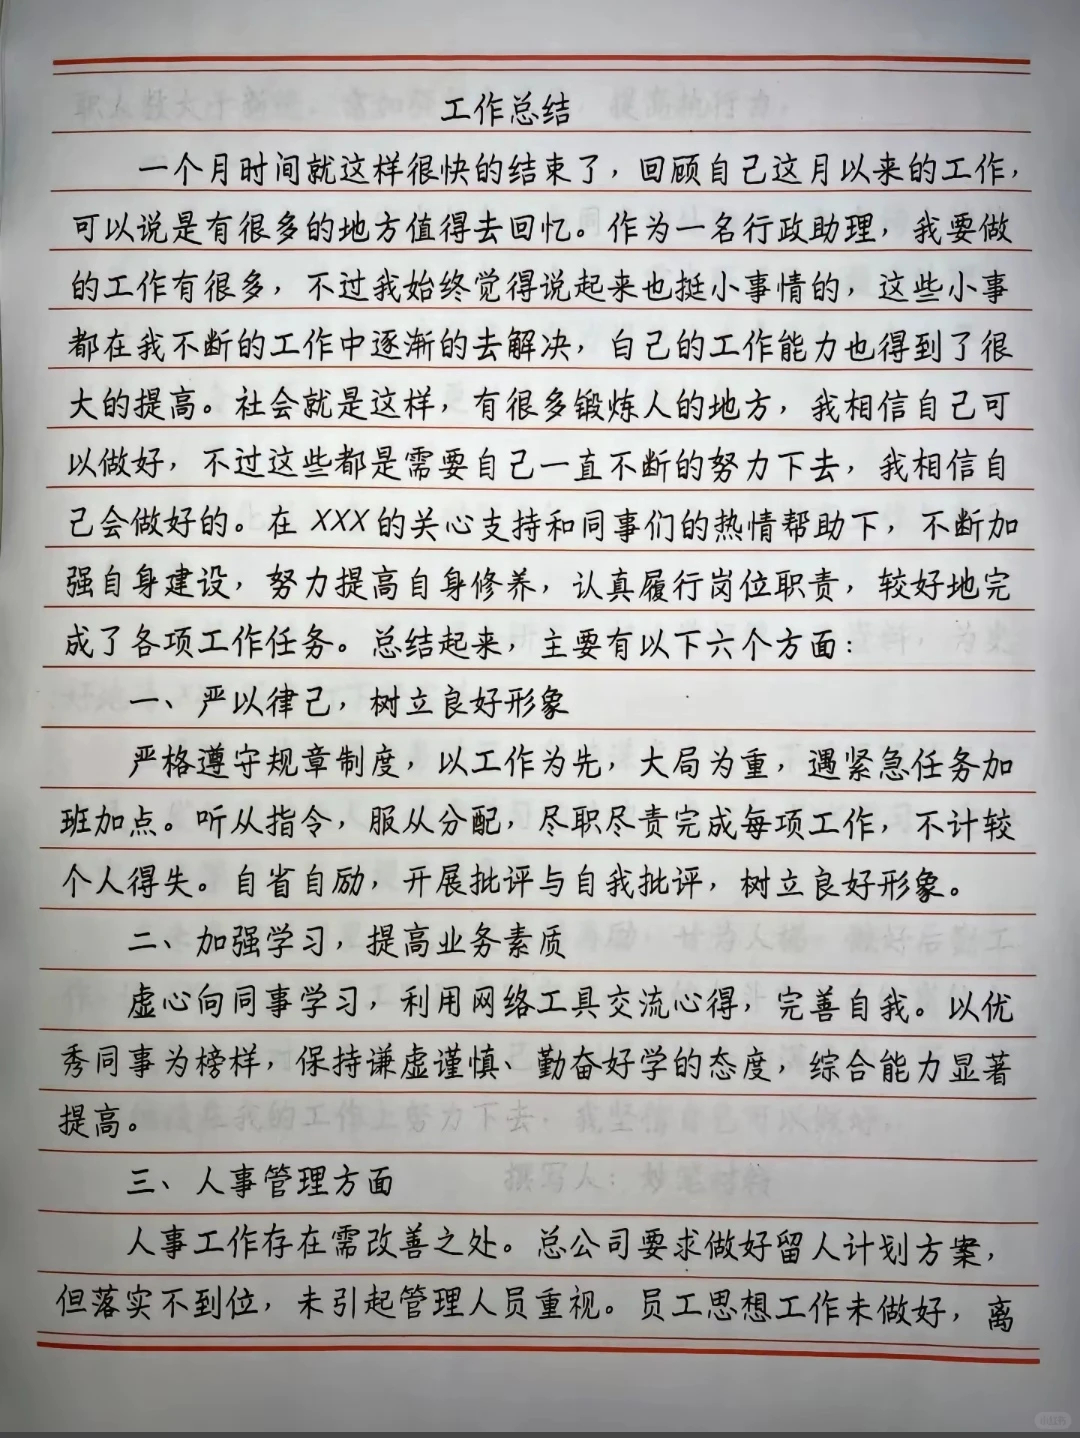 工作总结
一个月时间就这样很快的结束了，回顾自己这月以来的工作，
可以说是有很多的地方值得去回忆。作为一名行政助理，我要做
的工作有很多，不过我始终觉得说起来也挺小事情的，这些小事
都在我不断的工作中逐渐的去解决，自己的工作能力也得到了很
大的提高。社会就是这样，有很多锻炼人的地方，我相信自己可
以做好，不过这些都是需要自己一直不断的努力下去，我相信自
己会做好的。在XXX的关心支持和同事们的热情帮助下，不断加
强自身建设，努力提高自身修养，认真履行岗位职责，较好地完
成了各项工作任务。总结起来，主要有以下六个方面：
一、严以律己，树立良好形象
严格遵守规章制度，以工作为先，大局为重，遇紧急任务加
班加点。听从指令，服从分配，尽职尽责完成每项工作，不计较
个人得失。自省自励，开展批评与自我批评，树立良好形象。
二、加强学习，提高业务素质
虚心向同事学习，利用网络工具交流心得，完善自我。以优
秀同事为榜样，保持谦虚谨慎、勤奋好学的态度，综合能力显著
提高。
三、人事管理方面
人事工作存在需改善之处。总公司要求做好留人计划方案，
但落实不到位，未引起管理人员重视。员工思想工作未做好，离
小红书